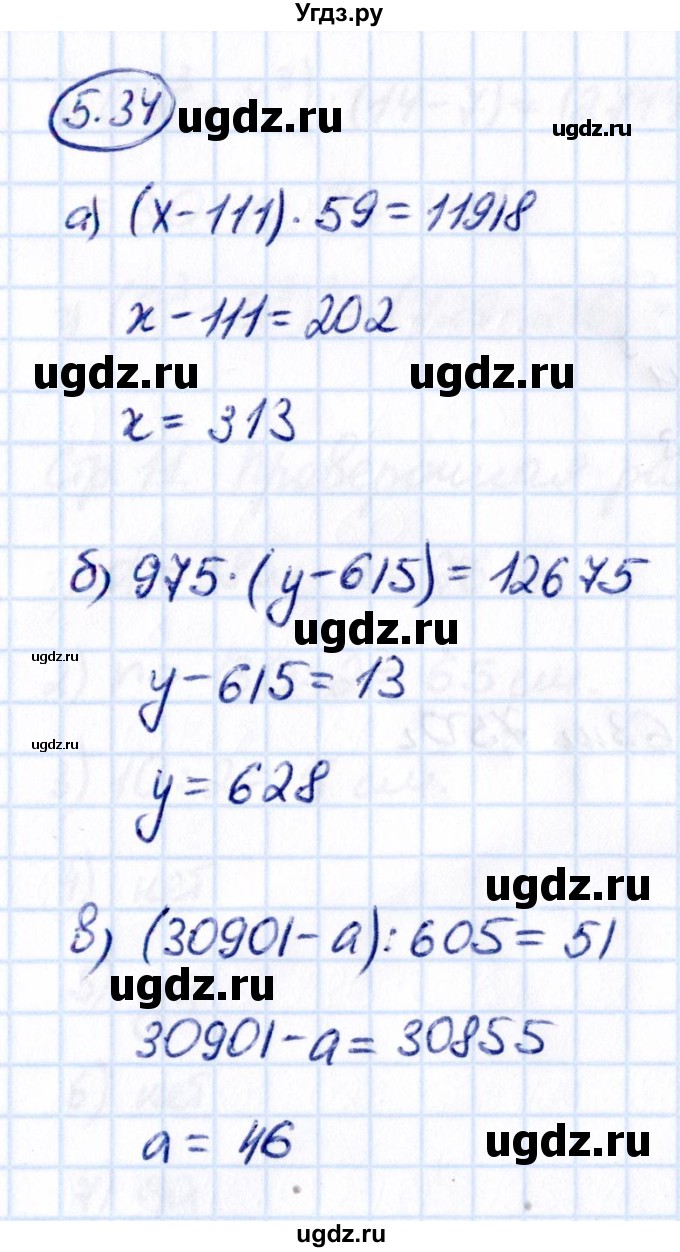 Угдз.ру
5.34 ugdz.ru ugdz.ru
а) (x-111)·59=11918
x-111=202
ugdz.ru ugdz.ru
x= 313
б) 975·(y-615)= 12675
ugdz.ru
ugdz.ru
y-615=13
ugdz.ru
y=628
ugdz.ru
в) (30901-a):605=51
ugdz.ru
30901-a=30855
a= 46
ugdz.ru
ugdz.ru